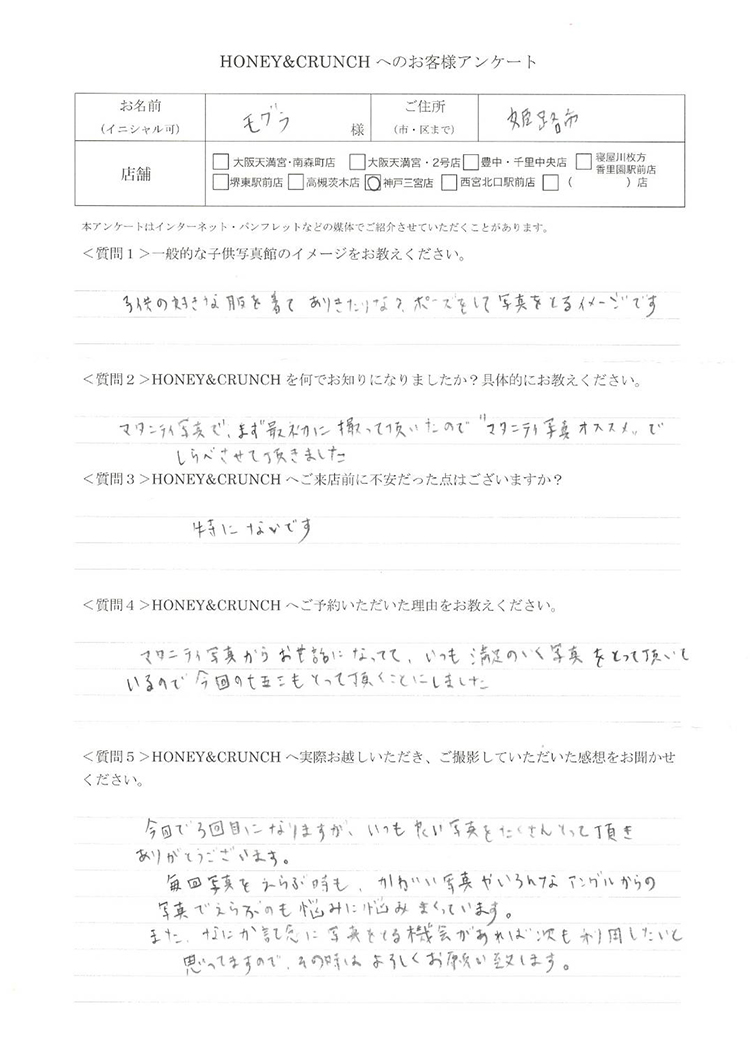 HONEY&CRUNCH へのお客様アンケート
お名前
(イニシャル可)
モグラ 様
ご住所
(市・区まで)
姫路市
店舗
大阪天満宮・南森町店 大阪天満宮・2号店 豊中・千里中央店 寝屋川枚方香里園駅前店
堺東駅前店 高槻茨木店 神戸三宮店 西宮北口駅前店 ( )店
本アンケートはインターネット・パンフレットなどの媒体でご紹介させていただくことがあります。
<質問1>一般的な子供写真館のイメージをお教えください。
子供の好きな服を着て ありきたりな?ポーズをして写真をとるイメージです
<質問2>HONEY&CRUNCH を何でお知りになりましたか?具体的にお教えください。
マタニティ写真で、まず最初に撮って頂いたので"マタニティ写真オススメ"で
しらべさせて頂きました
<質問3>HONEY&CRUNCH へご来店前に不安だった点はございますか?
特にないです
<質問4>HONEY&CRUNCH へご予約いただいた理由をお教えください。
マタニティ写真からお世話になってて、いつも満足のいく写真をとって頂いて
いるので今回の七五三もとって頂くことにしました
<質問5>HONEY&CRUNCH へ実際お越しいただき、ご撮影していただいた感想をお聞かせ
ください。
今回で3回目になりますが、いつも良い写真をたくさんとって頂き
ありがとうございます。
毎回写真をえらぶ時も、かわいい写真やいろんなアングルからの
写真でえらぶのも悩みに悩みまくっています。
また、なにか記念に写真をとる機会があれば次も利用したいと
思ってますので、その時はよろしくお願い致します。